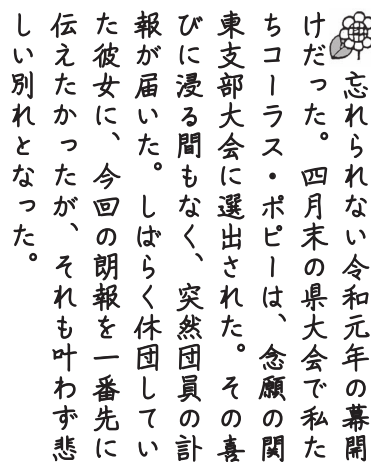 忘れられない令和元年の幕開
けだった。四月末の県大会で私た
ちコーラス・ポピーは、念願の関
東支部大会に選出された。その喜
びに浸る間もなく、突然団員の訃
報が届いた。しばらく休団してい
た彼女に、今回の朗報を一番先に
伝えたかったが、それも叶わず悲
しい別れとなった。